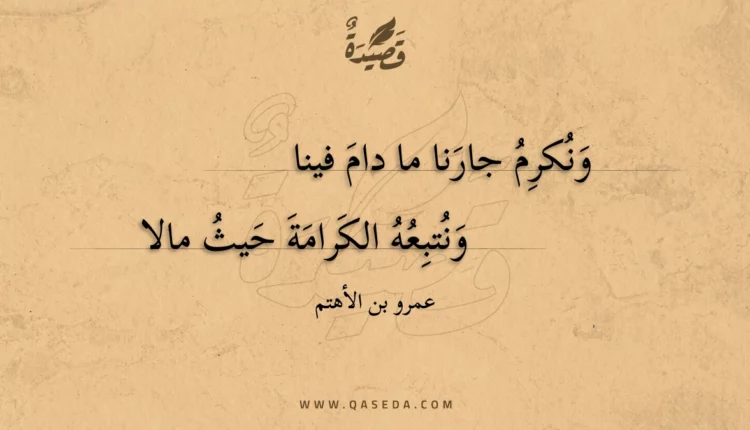 قَصِيْدَةٌ
وَنُكرِمُ جارَنا ما دامَ فينا
وَنُتبِعُهُ الكَرامَةَ حَيثُ مالا
عمرو بن الأهتم
WWW.QASEDA.COM